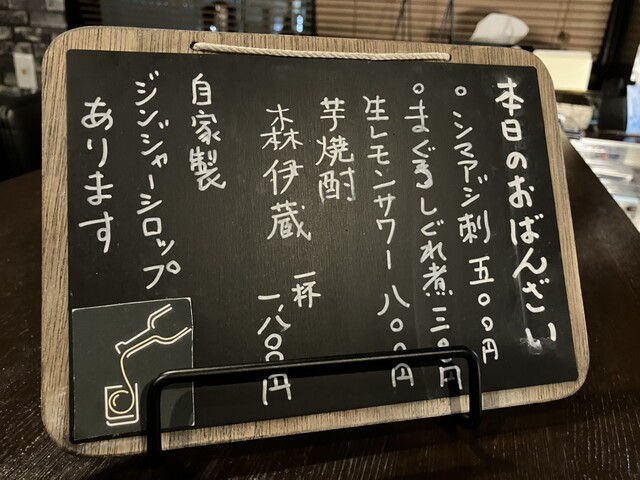 本日のおばんざい
。シマアジ刺 五〇〇円
。まぐろしぐれ煮 三〇〇円
生レモンサワー 八〇〇円
芋焼酎
森伊蔵 一杯 一、八〇〇円
自家製
ジンジャーシロップ
あります